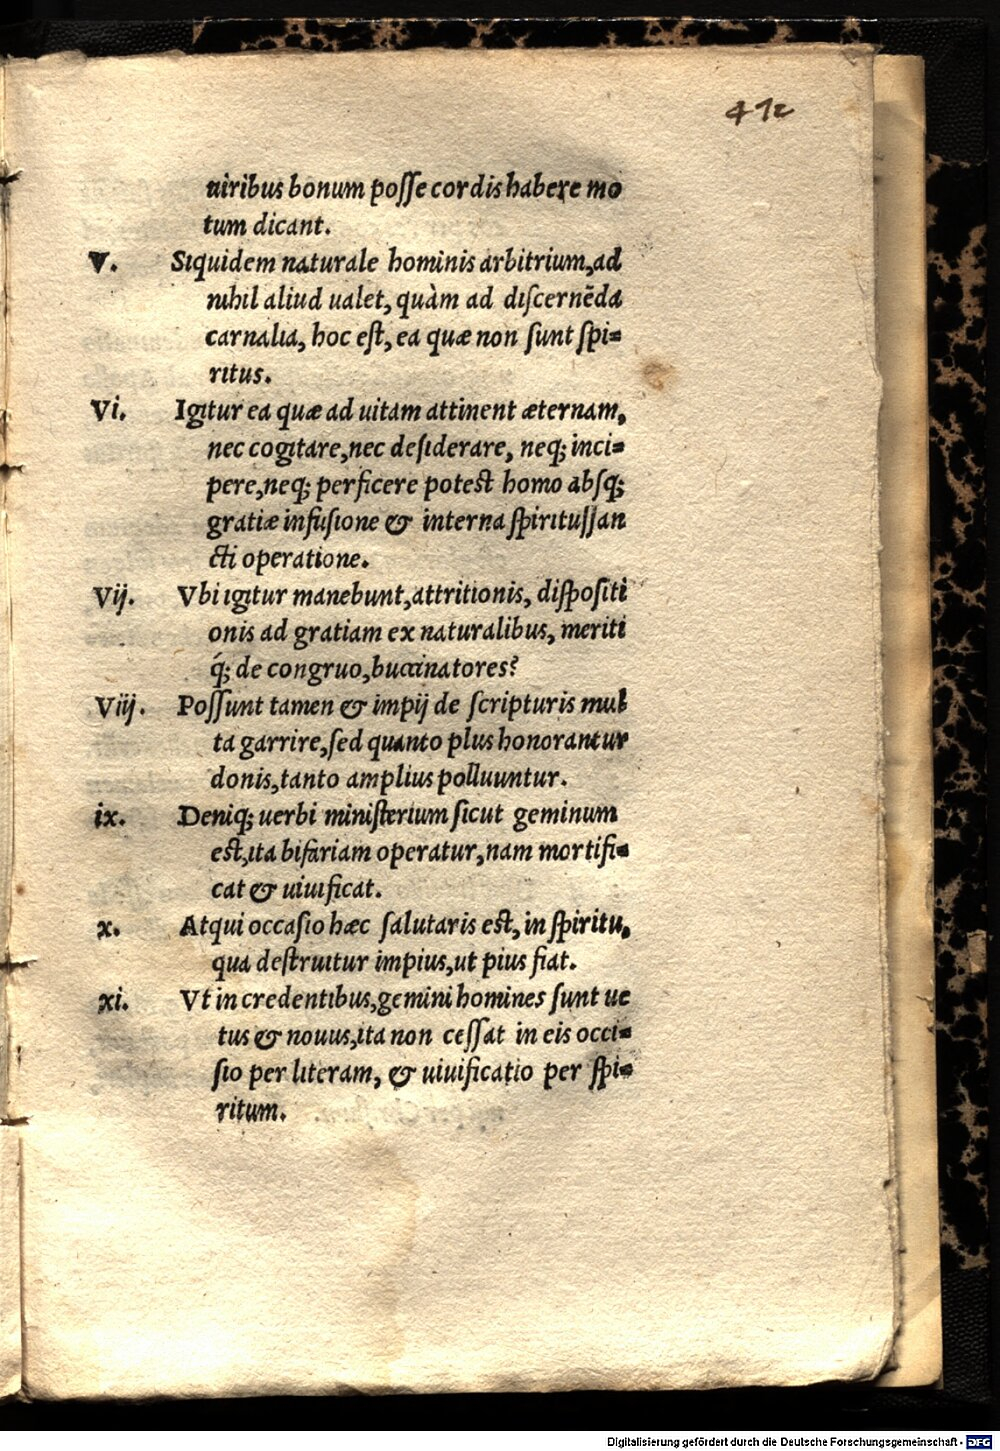 412
uiribus bonum posse cordis habere mo
tum dicant.
V. Siquidem naturale hominis arbitrium, ad
nihil aliud ualet, quàm ad discernēda
carnalia, hoc est, ea quæ non sunt spi=
ritus.
Vi. Igitur ea quæ ad uitam attinent æternam,
nec cogitare, nec desiderare, neq; inci=
pere, neq; perficere potest homo absq;
gratiæ infusione & interna spiritussan
cti operatione.
Vij. Vbi igitur manebunt, attritionis, dispositi
onis ad gratiam ex naturalibus, meriti
q́; de congruo, buccinatores?
Viij. Possunt tamen & impij de scripturis mul
ta garrire, sed quanto plus honorantur
donis, tanto amplius polluuntur.
ix. Deniq; uerbi ministerium sicut geminum
est, ita bifariam operatur, nam mortifi=
cat & uiuificat.
x. Atqui occasio hæc salutaris est, in spiritu,
qua destruitur impius, ut pius fiat.
xi. Vt in credentibus, gemini homines sunt ue
tus & nouus, ita non cessat in eis occi=
sio per literam, & uiuificatio per spi=
ritum.
Digitalisierung gefördert durch die Deutsche Forschungsgemeinschaft - DFG